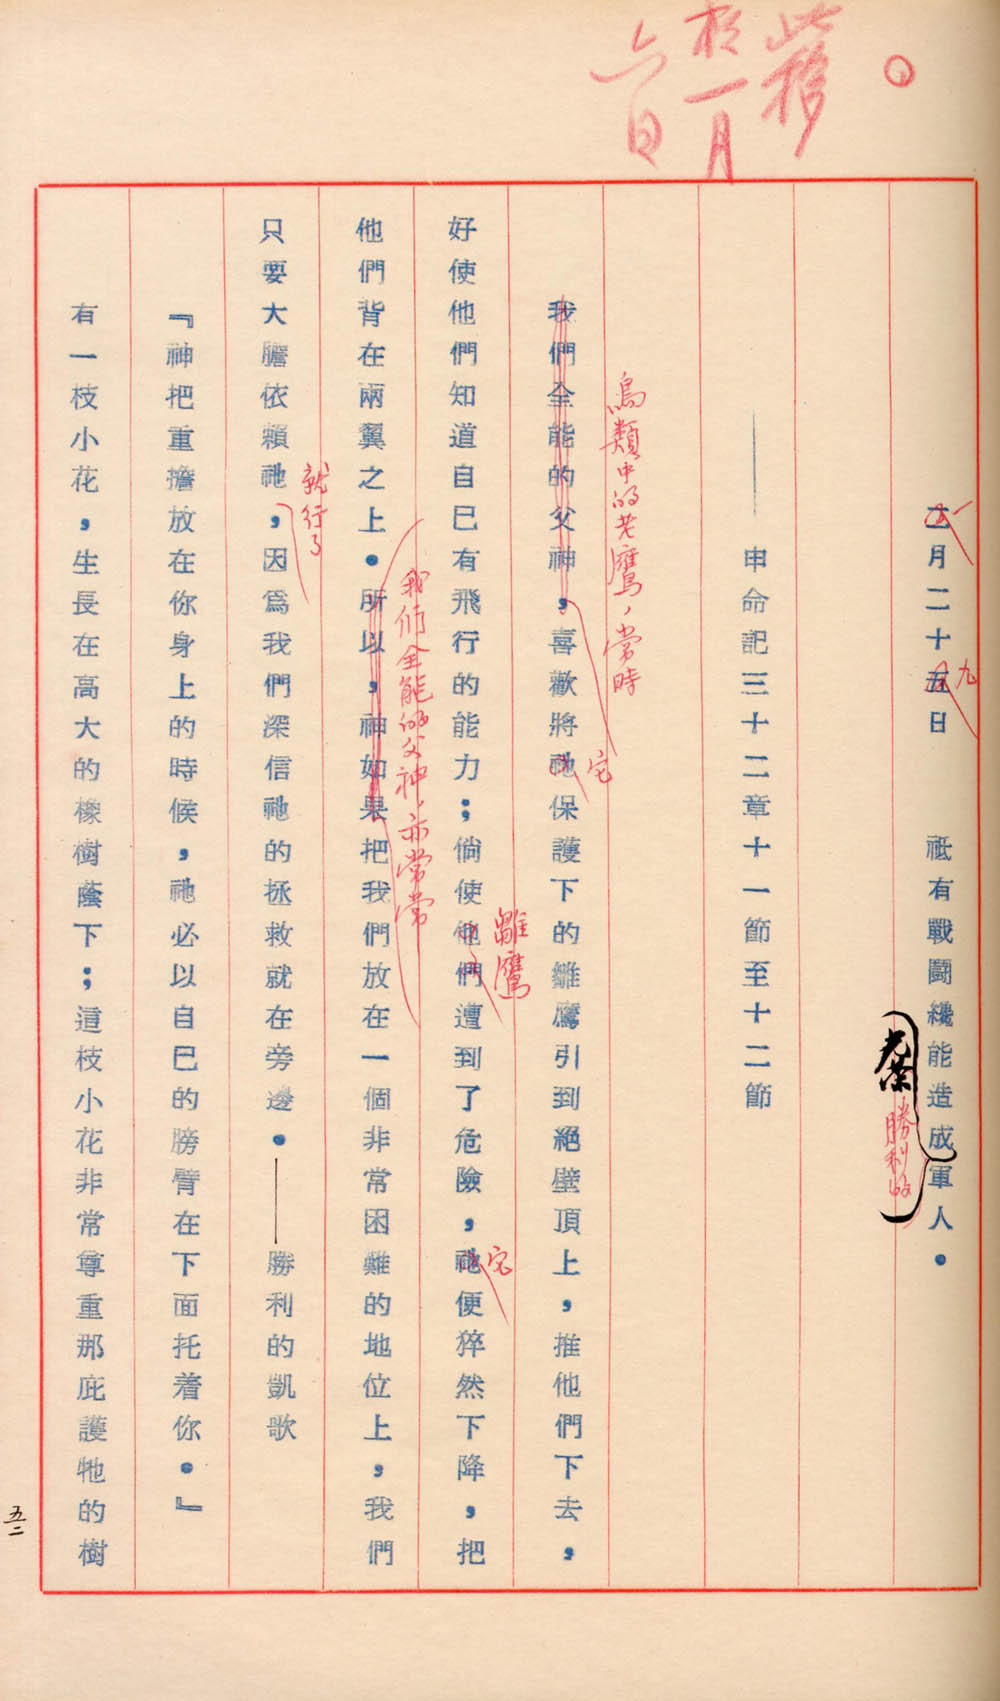 移
於一月
六日
二月二十五日　祗有戰鬪纔能造成軍人。
一
九
光榮
勝利的
——申命記三十二章十一節至十二節
鳥類中的老鷹，常時
我們全能的父神，喜歡將祂保護下的雛鷹引到絕壁頂上，推他們下去，
它
好使他們知道自己有飛行的能力；倘使他們遭到了危險，祂便猝然下降，把
雛鷹
它
他們背在兩翼之上。所以，神如果把我們放在一個非常困難的地位上，我們
我们全能的父神，亦常常
只要大膽依賴祂，因爲我們深信祂的拯救就在旁邊。——勝利的凱歌
就行了
『神把重擔放在你身上的時候，祂必以自己的膀臂在下面托着你。』
有一枝小花，生長在高大的橡樹蔭下；這枝小花非常尊重那庇護牠的樹
五二